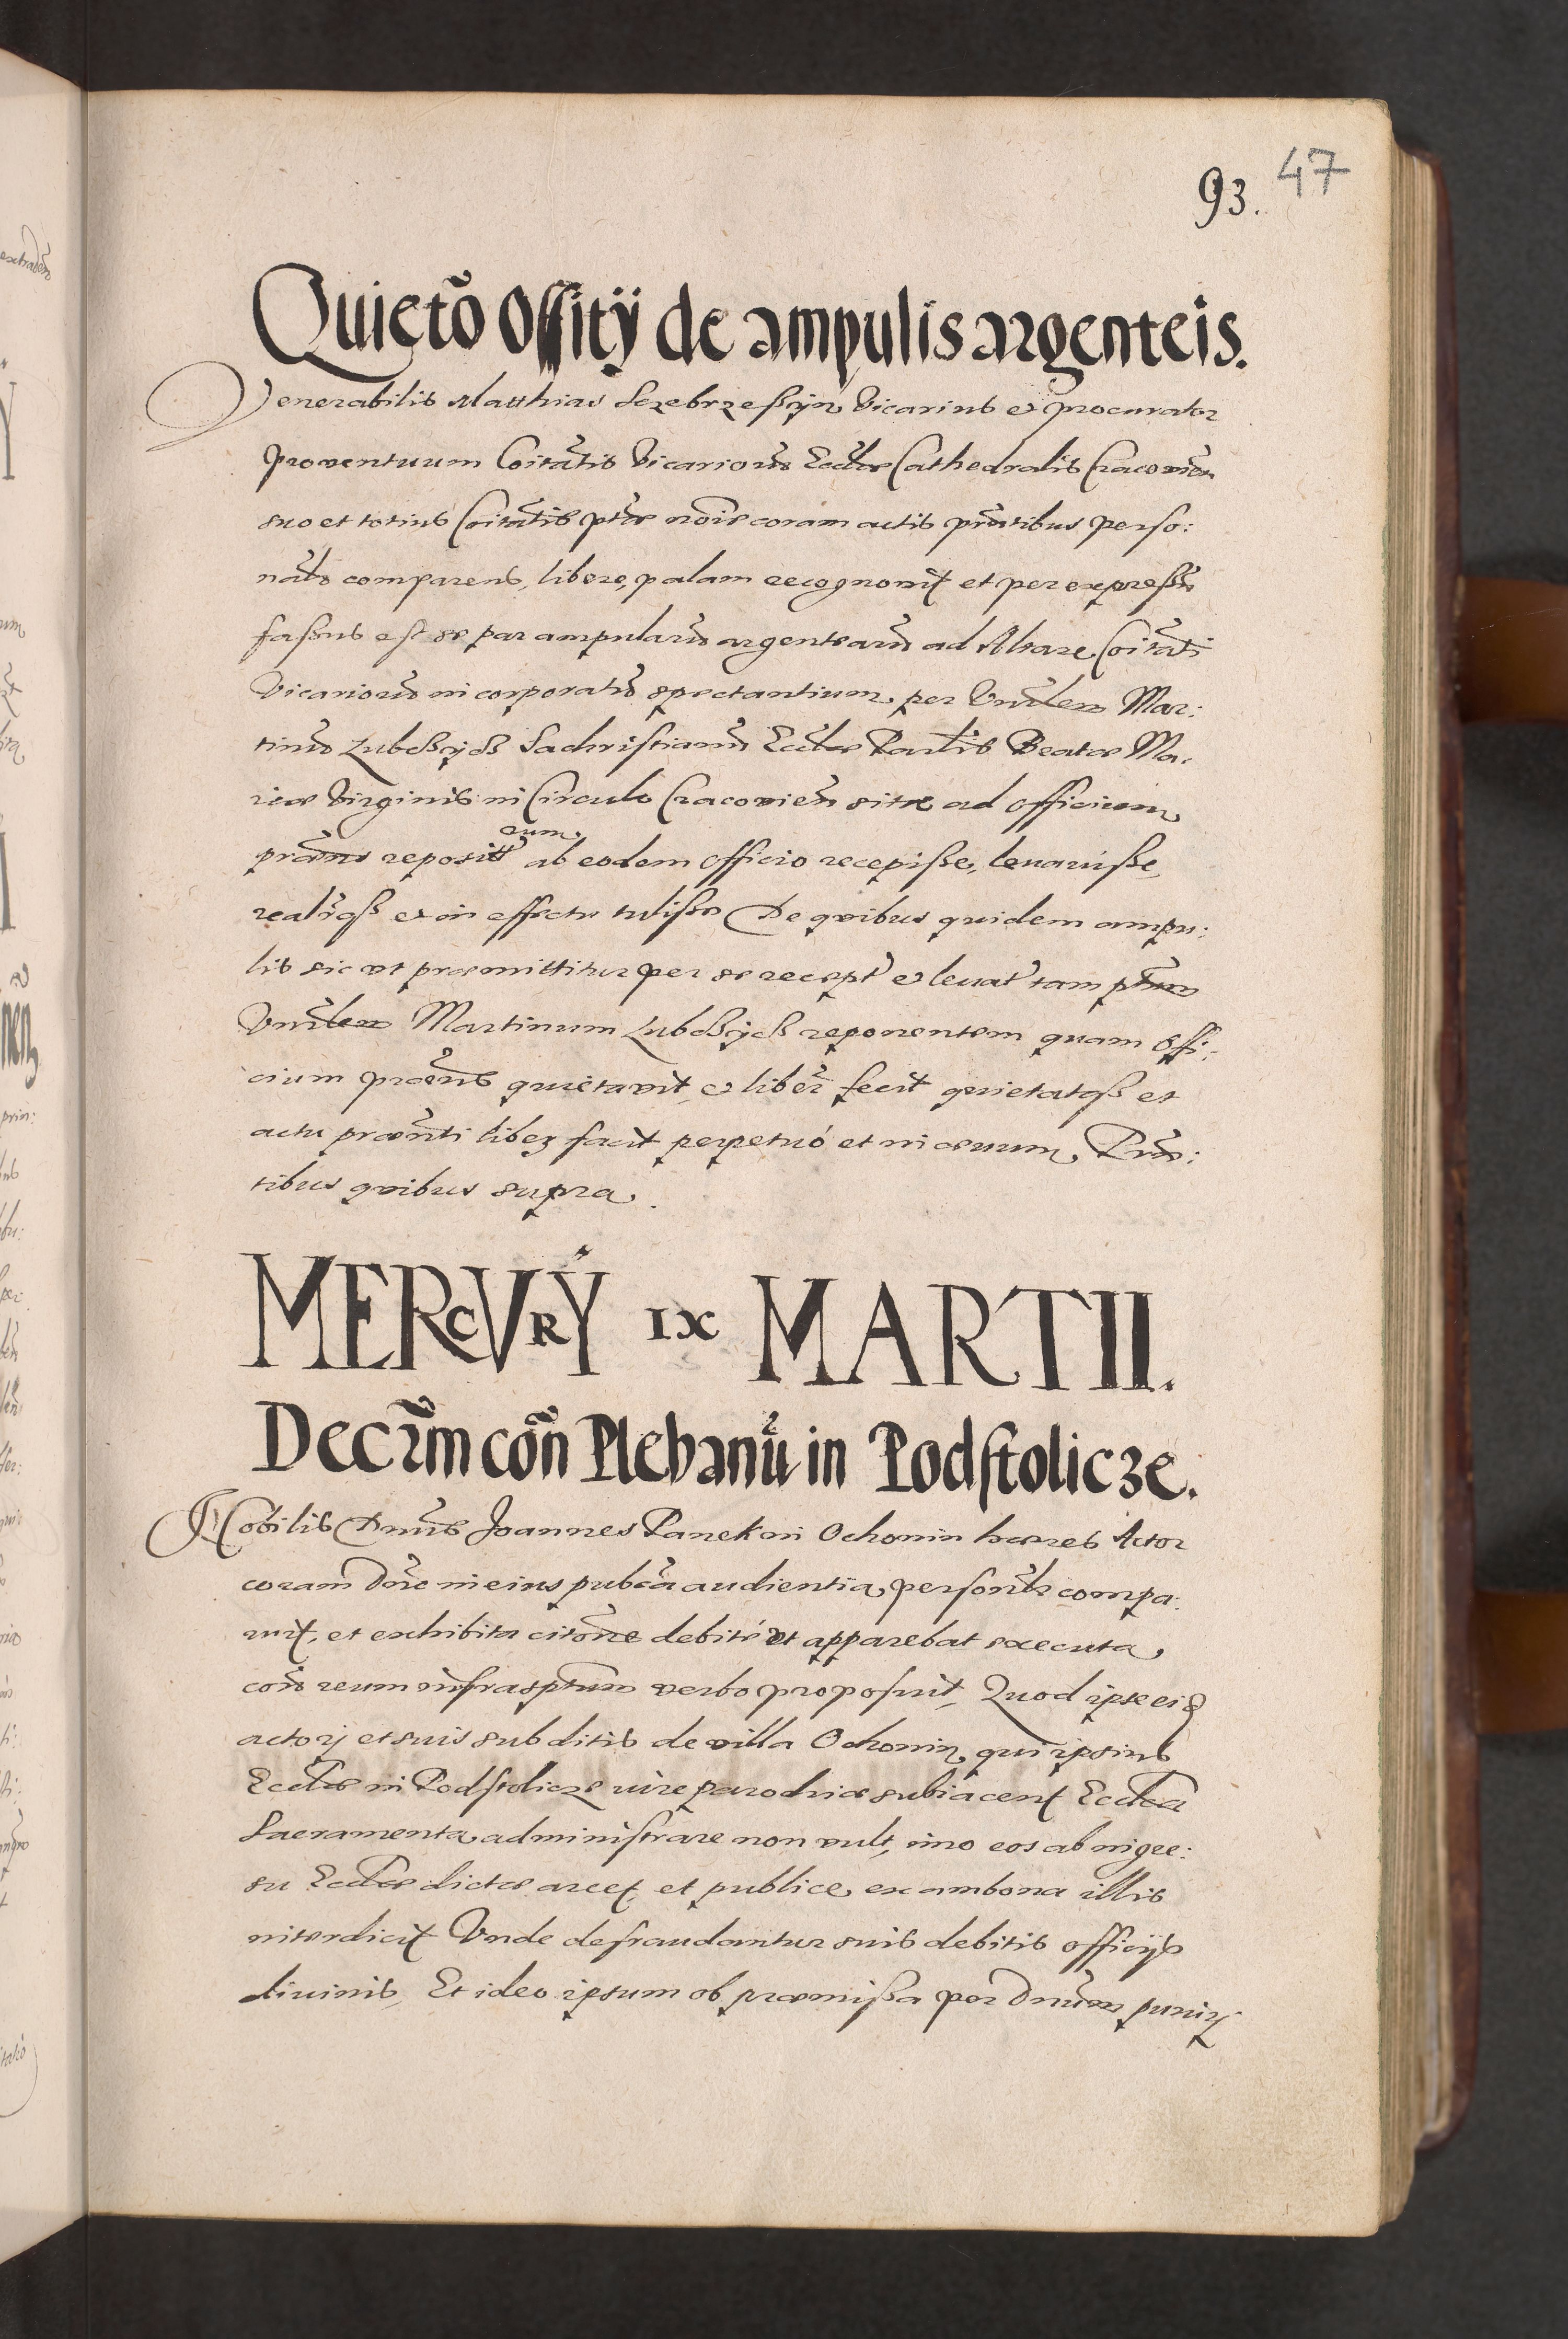 93. 47
Quietõ Offitÿ de ampulis argenteis.
Venerabilis Matthias Sczebrzessyn Vicarius et procurator
proventuum Coitatis Vicariorũ Eccliæ Cathedralis Cracovien
suo et totius Coitatis ptæ nõie coram actis pñtibus perso:
nalr comparens, libere, palam recognovit et per expressũ
fassus est se par ampularũ argentearũ ad Altare Coitati
Vicariorũ incorporatũ spectantium per Vnrlem Mar:
tinũ Lubckzyck Sachristianũ Eccliæ Parlis Beatæ Ma:
riæ Virginis in Circulo Cracovien sitæ ad officium
præns reposit eum ab eodem officio recepisse, levavisse,
realrqß et in effectu tulisse De quibus quidem ampu:
lis sic ut præmittitur per se recept et levat tam ptum
Vnrlem Martinum Lubckzyck reponentem quam offi:
cium præns quietavit et liber fecit quietatqß et
actu prænti liber facit perpetuó et in ævum, Prñ:
tibus quibus supra.
MERCVRŸ IX MARTII.
Decrm con Plebanũ in Podstolicze.
Nobilis Dnus Joannes Panek in Ochonin hæres Actor
coram Dno in eius publca audientia personlr compa:
ruit, et exhibita citone debité ut apparebat executa
con reum infrasptum verbo proposuit, Quod ipse eid
actorj et suis subditis de villa Ochonin, qui ipsius
Eccliæ in Podstolicze iure parochiæ subiacent Ecclca
Sacramenta administrare non vult, imo eos ab ingre:
su Eccliæ dictæ arcet, et publice ex ambona illis
interdicit Vnde defraudantur suis debitis officijs
divinis, Et ideo ipsum ob præmissa per Dnum puniri